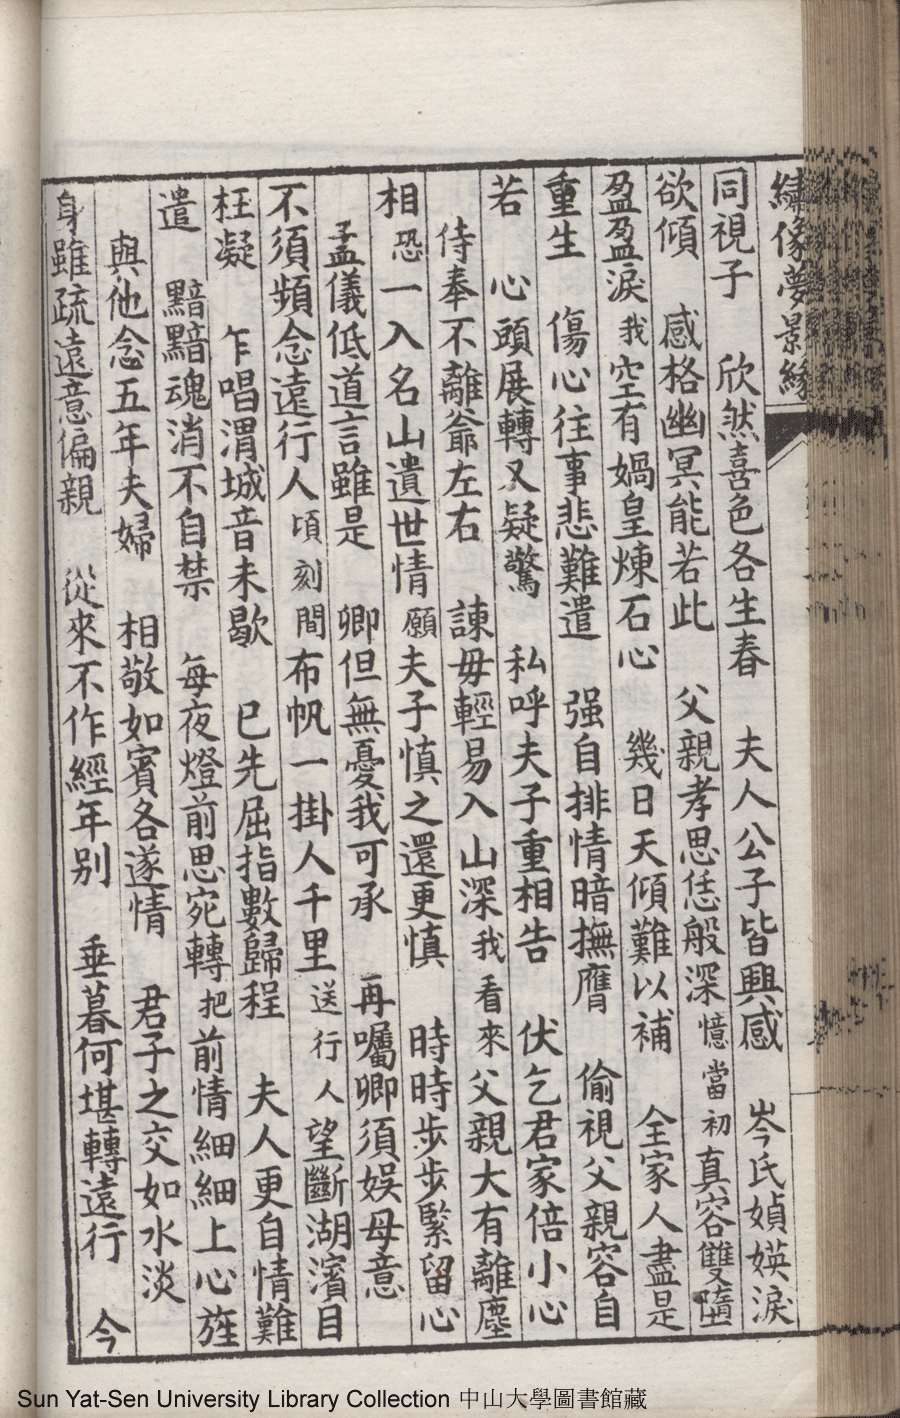 繡像夢景緣
同視子 欣然喜色各生春 夫人公子皆興感 岑氏媜媖淚
欲傾 感格幽冥能若此 父親孝思恁般深 憶當初真容雙墮
盈盈淚 我空有媧皇煉石心 幾日天傾難以補 全家人盡是
重生 傷心往事悲難遣 强自排情暗撫膺 偷視父親容自
若 心頭展轉又疑驚 私呼夫子重相告 伏乞君家倍小心
侍奉不離爺左右 諫毋輕易入山深 我看來父親大有離塵
相 恐一入名山遺世情 願夫子慎之還更慎 時時步步緊留心
孟儀低道言雖是 卿但無憂我可承 再囑卿須娛母意
不須頻念遠行人 頃刻間布帆一掛人千里 送行人望斷湖濱目
枉凝 乍唱渭城音未歇 已先屈指數歸程 夫人更自情難
遣 黯黯魂消不自禁 每夜燈前思宛轉 把前情細細上心旌
與他念五年夫婦 相敬如賓各遂情 君子之交如水淡
身雖疏遠意偏親 從來不作經年别 垂暮何堪轉遠行 今
Sun Yat-Sen University Library Collection 中山大學圖書館藏